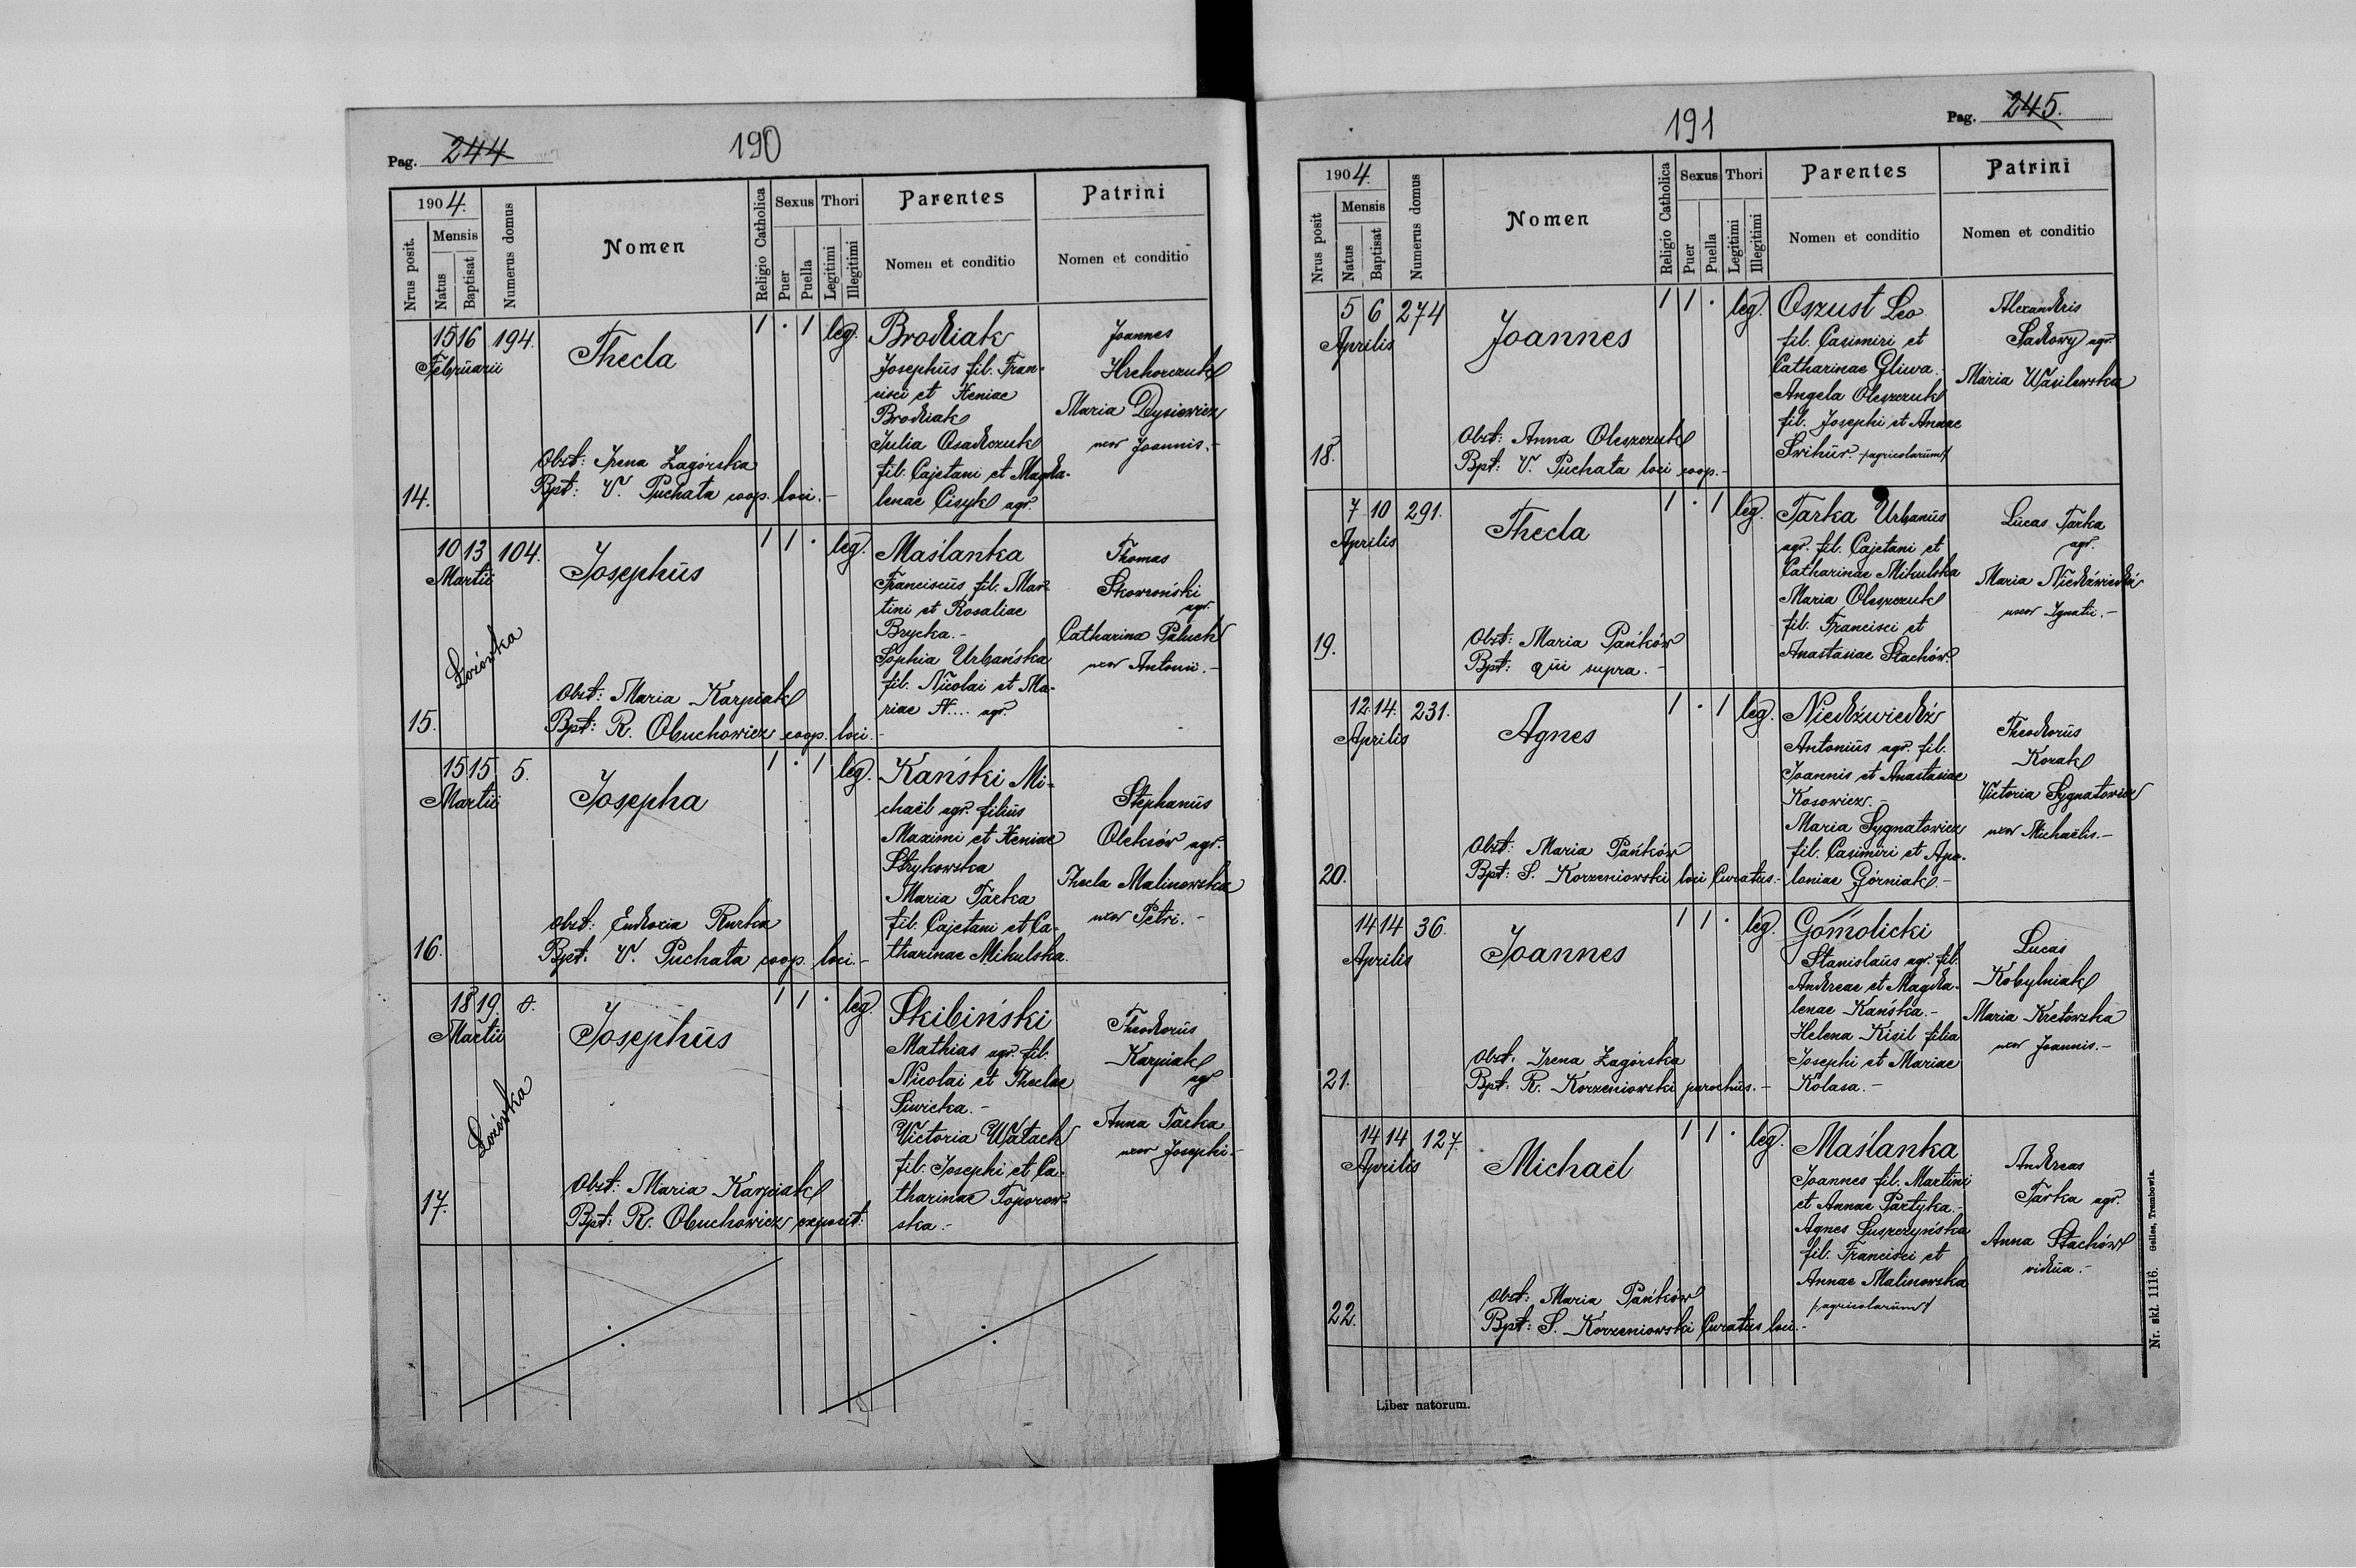 Pag. 244
190
1904.
Nrus posit.
Mensis
Natus
Baptisat
Numerus domus
Nomen
Religio Catholica
Sexus
Puer
Puella
Thori
Legitimi
Illegitimi
Parentes
Nomen et conditio
Patrini
Nomen et conditio
14.
15 16 194.
Februarii
Thecla
Obst: Irena Zagórska
Bpt: V. Puchata coop. loci.-
1 · 1 leg.
Brodziak
Josephus fil. Fran-
cisci et Xeniae
Brodziak
Julia Osadczuk
fil. Cajetani et Magda-
lenae Cisyk agr.
Joannes
Hrehorczuk
Maria Dysiewicz
uxor Joannis.-
15.
10 13 104.
Martii
Łozówka
Josephus
Obst: Maria Karpiak
Bpt: R. Obuchowicz coop. loci.-
1 1 · leg.
Maślanka
Franciscus fil. Mar-
tini et Rosaliae
Brycka.-
Sophia Urbańska
fil. Nicolai et Ma-
riae N.... agr.
Thomas
Skowroński
agr.
Catharina Paluch
uxor Antonii.-
16.
15 15 5.
Martii
Josepha
Obst: Eudoxia Rurka
Bpt: V. Puchata coop. loci.-
1 · 1 leg.
Kański Mi-
chaël agr. filius
Maximi et Xeniae
Strykowska
Maria Tarka
fil. Cajetani et Ca-
tharinae Mikulska.
Stephanus
Oleksów agr.
Thecla Malinowska
uxor Petri.-
17.
18 19. 8.
Martii
Łozówka
Josephus
Obst: Maria Karpiak
Bpt: R. Obuchowicz exposit:
1 1 · leg.
Skibiński
Mathias agr. fil.
Nicolai et Theclae
Siwicka.-
Victoria Watach
fil. Josephi et Ca-
tharinae Toporow-
ska.-
Theodorus
Karpiak
agr
Anna Tarka
uxor Josephi.-
191
Pag. 245.
1904.
Nrus posit
Mensis
Natus
Baptisat
Numerus domus
Nomen
Religio Catholica
Sexus
Puer
Puella
Thori
Legitimi
Illegitimi
Parentes
Nomen et conditio
Patrini
Nomen et conditio
18.
5 6 274
Aprilis
Joannes
Obst: Anna Oleszczuk
Bpt: V. Puchata loci coop.-
1 1 · leg.
Oszust Leo
fil. Casimiri et
Catharinae Gliwa.
Angela Oleszczuk
fil. Josephi et Annae
Swihur /:agricolarum:/
Sadowy agr.
Maria Wasilewska
19.
7 10 291.
Aprilis
Thecla
Obst: Maria Pańków
Bpt: qui supra.-
1 · 1 leg.
Tarka Urbanus
agr. fil. Cajetani et
Catharinae Mikulska
Maria Oleszczuk
fil. Francisci et
Anastasiae Stachów.
Lucas Tarka
agr.
Maria Niedźwiedź
uxor Ignatii.-
20.
12. 14. 231.
Aprilis
Agnes
Obst: Maria Pańków
Bpt: S. Korzeniowski loci Curatus.-
1 · 1 leg.
Niedźwiedź
Antonius agr. fil.
Joannis et Anastasiae
Kosowicz.-
Maria Sygnatowicz
fil. Casimiri et Apo-
loniae Górniak.-
Theodorus
Kozak
Victoria Sygnatowicz
uxor Michaëlis.-
21.
14 14 36.
Aprilis
Joannes
Obst: Irena Zagórska
Bpt: R. Korzeniowski parochus.-
1 1 · leg.
Gomolicki
Stanislaus agr. fil.
Andreae et Magda-
lenae Kańska.-
Helena Kisil filia
Josephi et Mariae
Kolasa.-
Lucas
Kobylniak
Maria Kretowska
uxor Joannis.-
22.
14 14 127.
Aprilis
Michaël
Obst: Maria Pańków
Bpt: S. Korzeniowski Curatus loci.-
1 1 · leg.
Maślanka
Joannes fil. Martini
et Annae Partyka.-
Agnes Suszczyńska
fil. Francisci et
Annae Malinowska
/:agricolarum:/
Andreas
Tarka agr.
Anna Stachów
vidua.-
Liber natorum.
Nr. skł. 1116. Gelles, Trembowla.